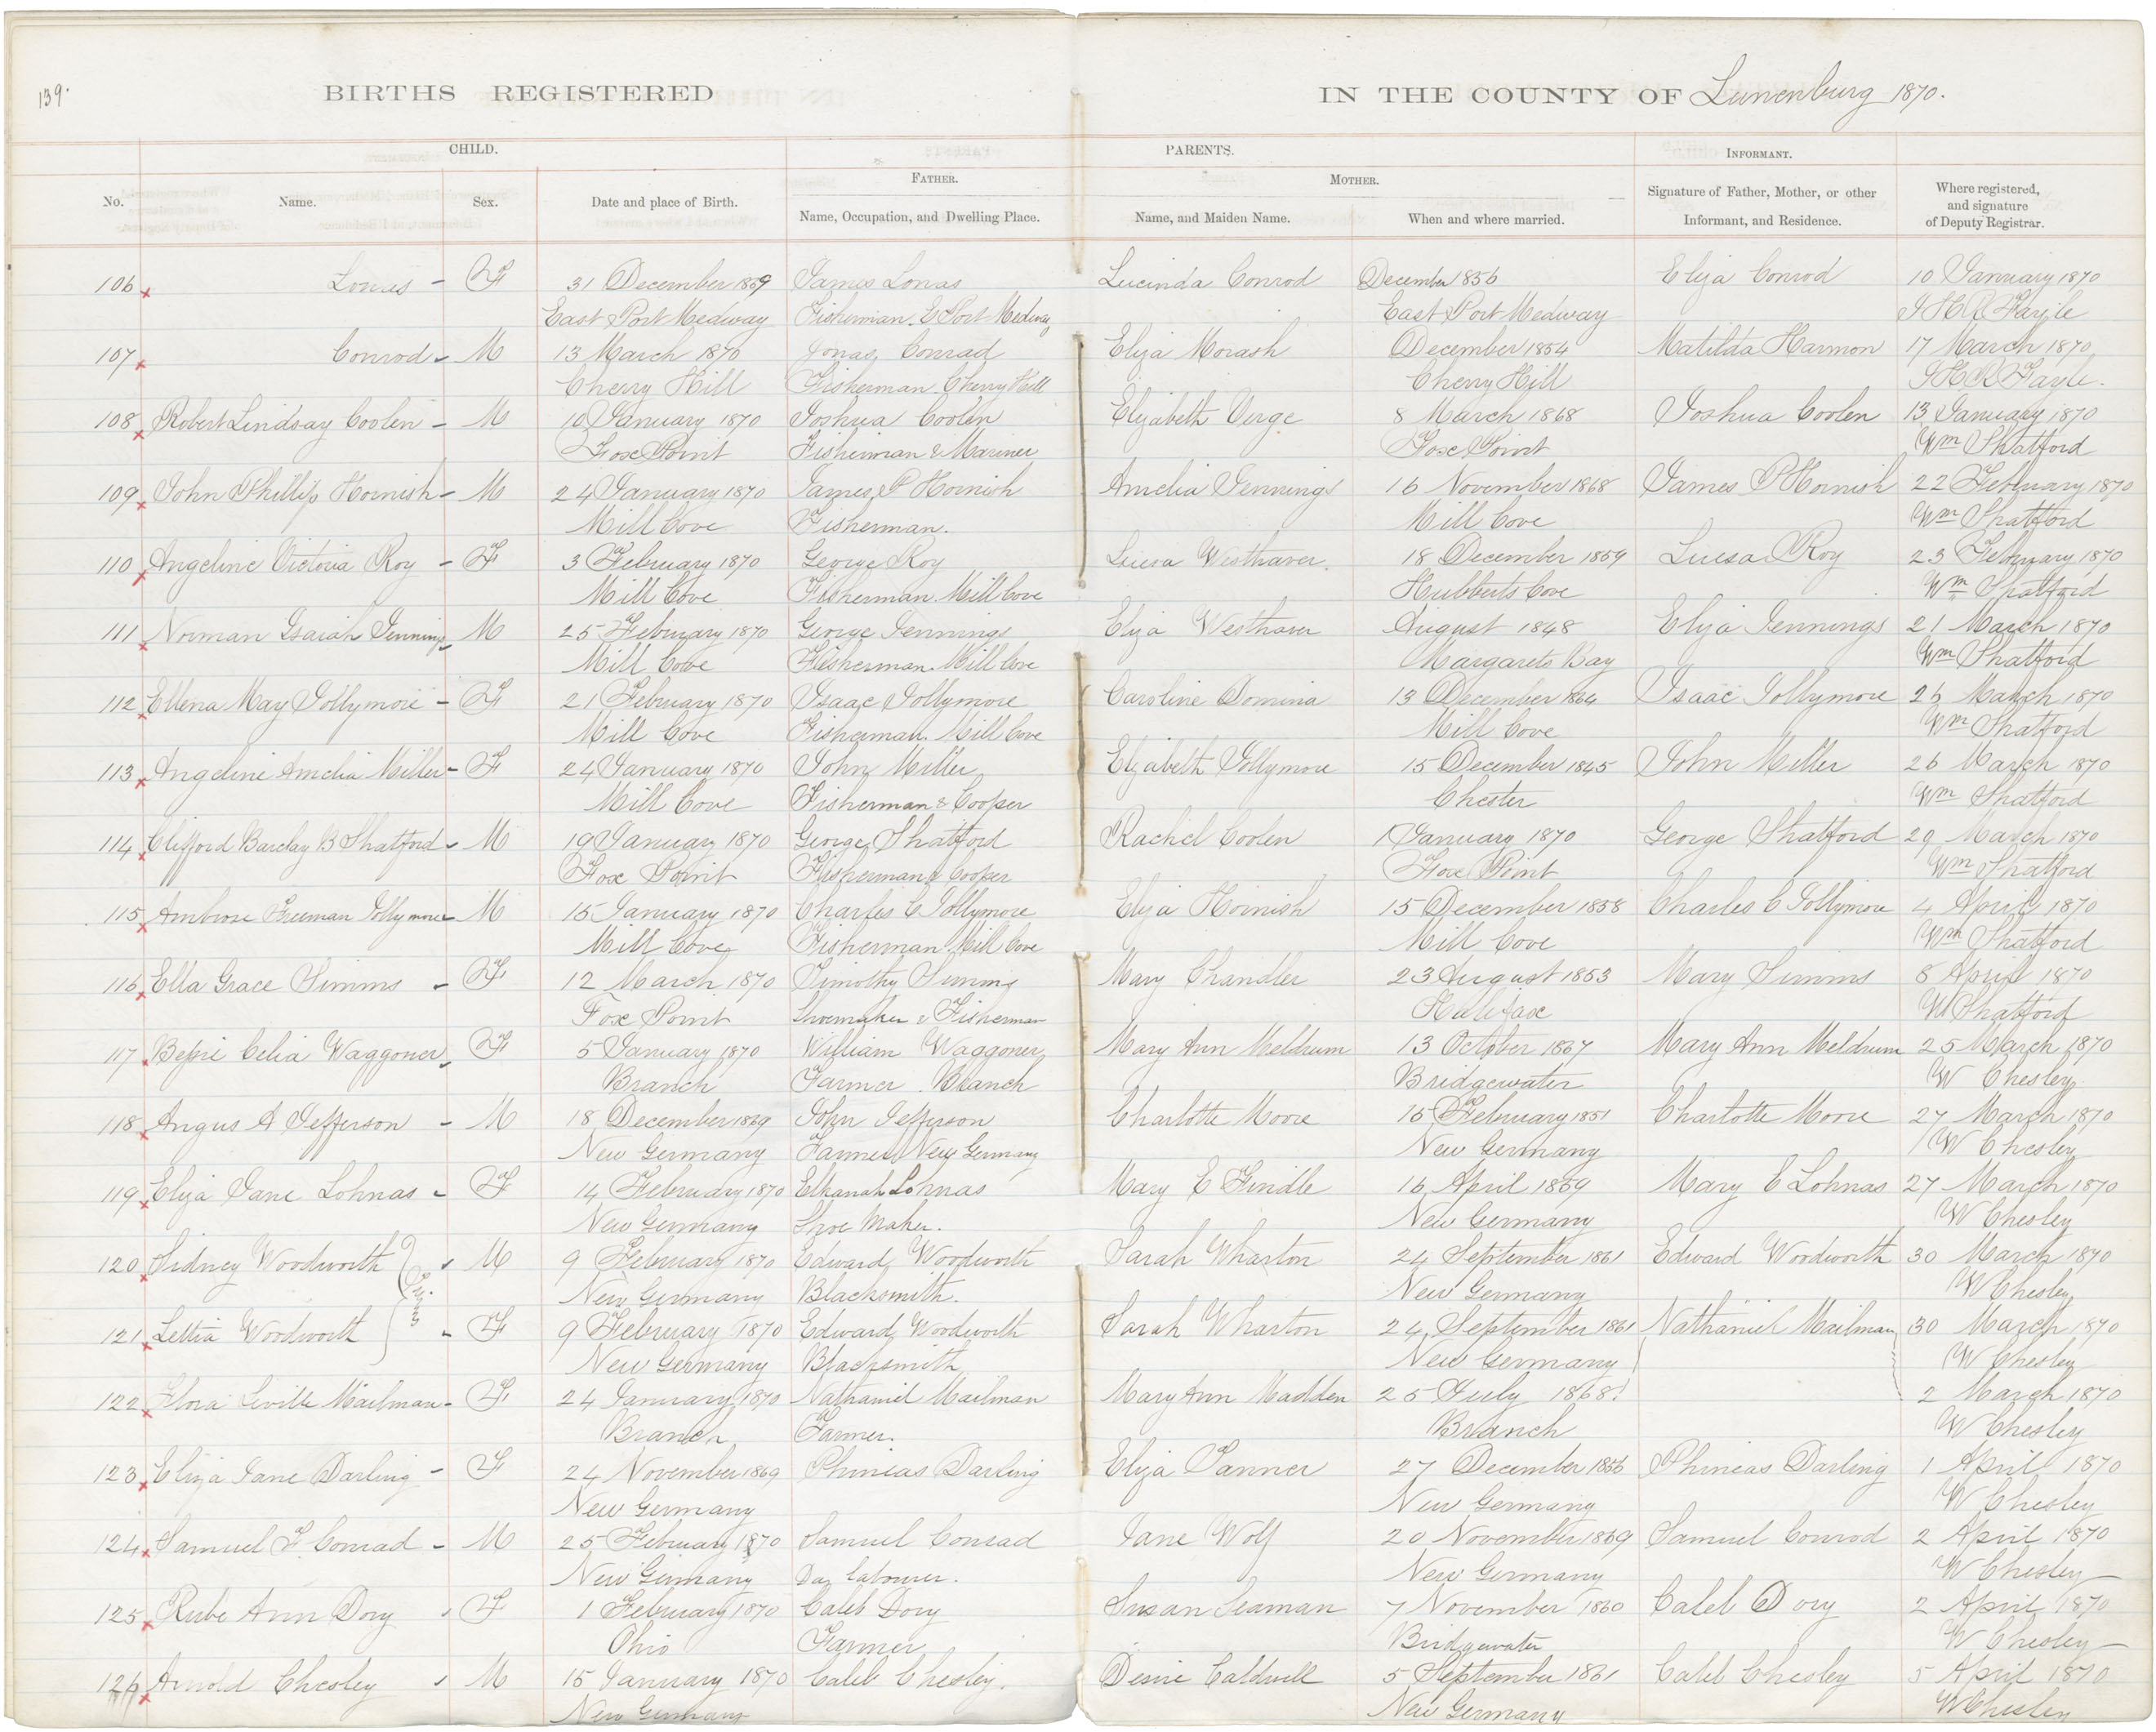 139.
BIRTHS REGISTERED IN THE COUNTY OF Lunenburg 1870.
CHILD. PARENTS. INFORMANT.
FATHER. MOTHER.
No. Name. Sex. Date and place of Birth. Name, Occupation, and Dwelling Place. Name, and Maiden Name. When and where married. Signature of Father, Mother, or other Informant, and Residence. Where registered, and signature of Deputy Registrar.
106 Lonas - F 31 December 1869 James Lonas Lucinda Conrod December 1856 Eliza Conrod 10 January 1870
East Port Medway Fisherman. E Port Medway East Port Medway
107 Conrod - M 13 March 1870 Jonas Conrad Eliza Morash December 1854 Matilda Harmon 17 March 1870
Cherry Hill Fisherman. Cherry Hill Cherry Hill
108 Robert Lindsay Coolen - M 10 January 1870 Joshua Coolen Elizabeth Verge 8 March 1868 Joshua Coolen 13 January 1870
Fox Point Fisherman & Mariner Fox Point Wm Shatford
109 John Phillip Hornish - M 24 January 1870 James P Hornish Amelia Jennings 16 November 1868 James P Hornish 22 February 1870
Mill Cove Fisherman. Mill Cove Wm Shatford
110 Angeline Victoria Roy - F 3 February 1870 George Roy Westhaver. 18 December 1859 Luesa Roy 23 February 1870
Mill Cove Fisherman. Mill Cove Hubberts Cove Wm Shatford
111 Norman Isaiah Jennings M 25 February 1870 George Jennings Eliza Westhaver August 1848 Eliza Jennings 21 March 1870
Mill Cove Fisherman. Mill Cove Margarets Bay Wm Shatford
112 Ellena May Jollymore - F 21 February 1870 Isaac Jollymore Caroline Domina 13 December 1864 Isaac Jollymore 26 March 1870
Mill Cove Fisherman. Mill Cove Mill Cove Wm Shatford
113 Angeline Amelia Miller - F 24 January 1870 John Miller Elizabeth Jollymore 15 December 1845 John Miller 26 March 1870
Mill Cove Fisherman & Cooper Chester Wm Shatford
114 Clifford Barclay B Shatford - M 19 January 1870 George Shatford Rachel Coolen 1 January 1870 George Shatford 29 March 1870
Fox Point Fisherman & Cooper Fox Point Wm Shatford
115 Ambrose Freeman Jollymore - M 15 January 1870 Charles C Jollymore Eliza Hornish 15 December 1858 Charles C Jollymore 4 April 1870
Mill Cove Fisherman. Mill Cove Mill Cove Wm Shatford
116 Ella Grace Simms - F 12 March 1870 Timothy Simms Mary Chandler 23 August 1853 Mary Simms 8 April 1870
Fox Point Shoemaker & Fisherman Halifax W Shatford
117 Bessie Celia Waggoner - F 5 January 1870 William Waggoner Mary Ann Meldrum 13 October 1867 Mary Ann Meldrum 25 March 1870
Branch Farmer. Branch Bridgewater W Chesley.
118 Angus A Jefferson - M 18 December 1869 John Jefferson Charlotte Moore 15 February 1851 Charlotte Moore 27 March 1870
New Germany Farmer New Germany New Germany W Chesley
119 Eliza Jane Lohnas - F 14 February 1870 Elkanah Lohnas Mary E Findle 16 April 1869 Mary E Lohnas 27 March 1870
New Germany Shoe Maker. New Germany W Chesley
120 Sidney Woodworth M 9 February 1870 Edward Woodworth Sarah Wharton 24 September 1861 Edward Woodworth 30 March 1870
New Germany Blacksmith. New Germany W Chesley
121 Lettia Woodworth - F 9 February 1870 Edward Woodworth Sarah Wharton 24 September 1861 Nathaniel Mailman 30 March 1870
New Germany Blacksmith New Germany W Chesley
122 Flora Mailman - F 24 January 1870 Nathaniel Mailman Mary Ann Madden 25 July 1868. 2 March 1870
Branch Farmer. Branch W Chesley
123 Eliza Jane Darling - F 24 November 1869 Phineas Darling Eliza Tanner 27 December 1856 Phineas Darling 1 April 1870
New Germany New Germany W Chesley
124 Samuel F Conrad - M 25 February 1870 Samuel Conrad Jane Wolf 20 November 1869 Samuel Conrod 2 April 1870
New Germany Day labourer. New Germany W Chesley
125 Rube Ann Dory F 1 February 1870 Caleb Dory Susan Seaman 7 November 1860 Caleb Dory 2 April 1870
Ohio Farmer Bridgewater W Chesley
126 Arnold Chesley M 15 January 1870 Caleb Chesley. Desire Caldwell 5 September 1861 Caleb Chesley 5 April 1870
New Germany New Germany W Chesley